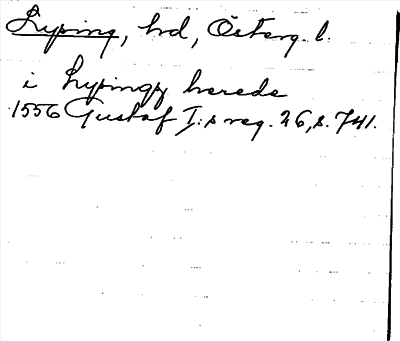 Lysing, hd, Österg. l.
i Lysingz herede
1556 Gustaf I:s reg. 26, s. 741.